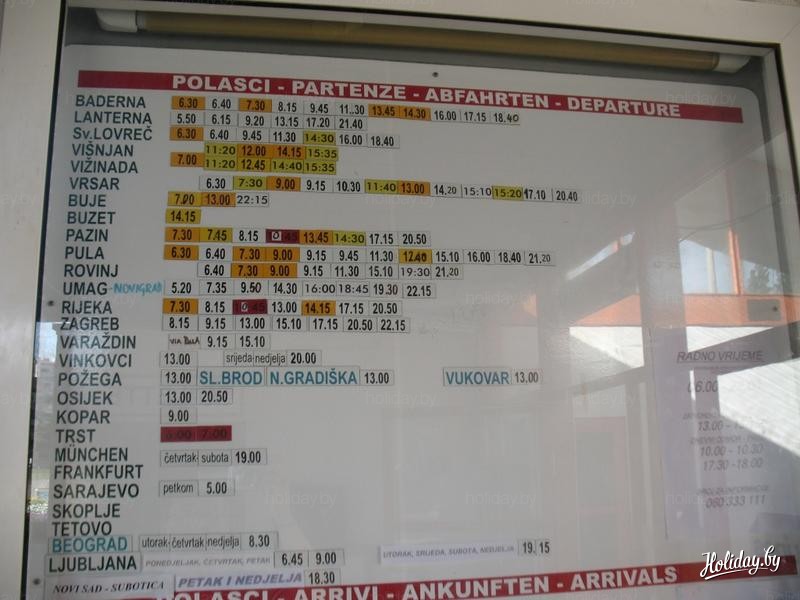 POLASCI - PARTENZE - ABFAHRTEN - DEPARTURE
BADERNA 6.30 6.40 7.30 8.15 9.45 11.30 13.45 14.30 16.00 17.15 18.40
LANTERNA 5.50 6.15 9.20 13.15 17.20 21.40
Sv.LOVREČ 6.30 6.40 9.45 11.30 14:30 16.00 18.40
VIŠNJAN 11:20 12.00 14.15 15:35
7.00
VIŽINADA 11:20 12.45 14:40 15:35
VRSAR 6.30 7:30 9.00 9.15 10.30 11:40 13.00 14.20 15:10 15:20 17.10 20.40
BUJE 7.00 13.00 22:15
BUZET 14.15
PAZIN 7.30 7.45 8.15 13.45 14:30 17.15 20.50
PULA 6.30 6.40 7.30 9.00 9.15 9.45 11.30 12.40 15.10 16.00 18.40 21.20
ROVINJ 6.40 7.30 9.00 9.15 11.30 15.10 19:30 21.20
UMAG -NOVIGRAD 5.20 7.35 9.50 14.30 16:00 18:45 19.30 22.15
RIJEKA 7.30 8.15 10.45 13.00 14.15 17.15 20.50
ZAGREB 8.15 9.15 13.00 15.10 17.15 20.50 22.15
VARAŽDIN VIA PULA 9.15 15.10
VINKOVCI 13.00 srijeda nedjelja 20.00
POŽEGA 13.00 SL.BROD N.GRADIŠKA 13.00 VUKOVAR 13.00
OSIJEK 13.00 20.50
KOPAR 9.00
TRST 6:00 7:00
MÜNCHEN četvrtak subota 19.00
FRANKFURT
SARAJEVO petkom 5.00
SKOPLJE
TETOVO
BEOGRAD utorak četvrtak nedjelja 8.30
LJUBLJANA PONEDJELJAK, ČETVRTAK, PETAK 6.45 9.00 UTORAK, SRIJEDA, SUBOTA, NEDJELJA 19.15
NOVI SAD - SUBOTICA PETAK I NEDJELJA 18.30
DOLASCI - ARRIVI - ANKUNFTEN - ARRIVALS
RADNO VRIJEME
06.00
13.00 -
10.00 - 10.30
17.30 -18.00
060 333 111
Holiday.by